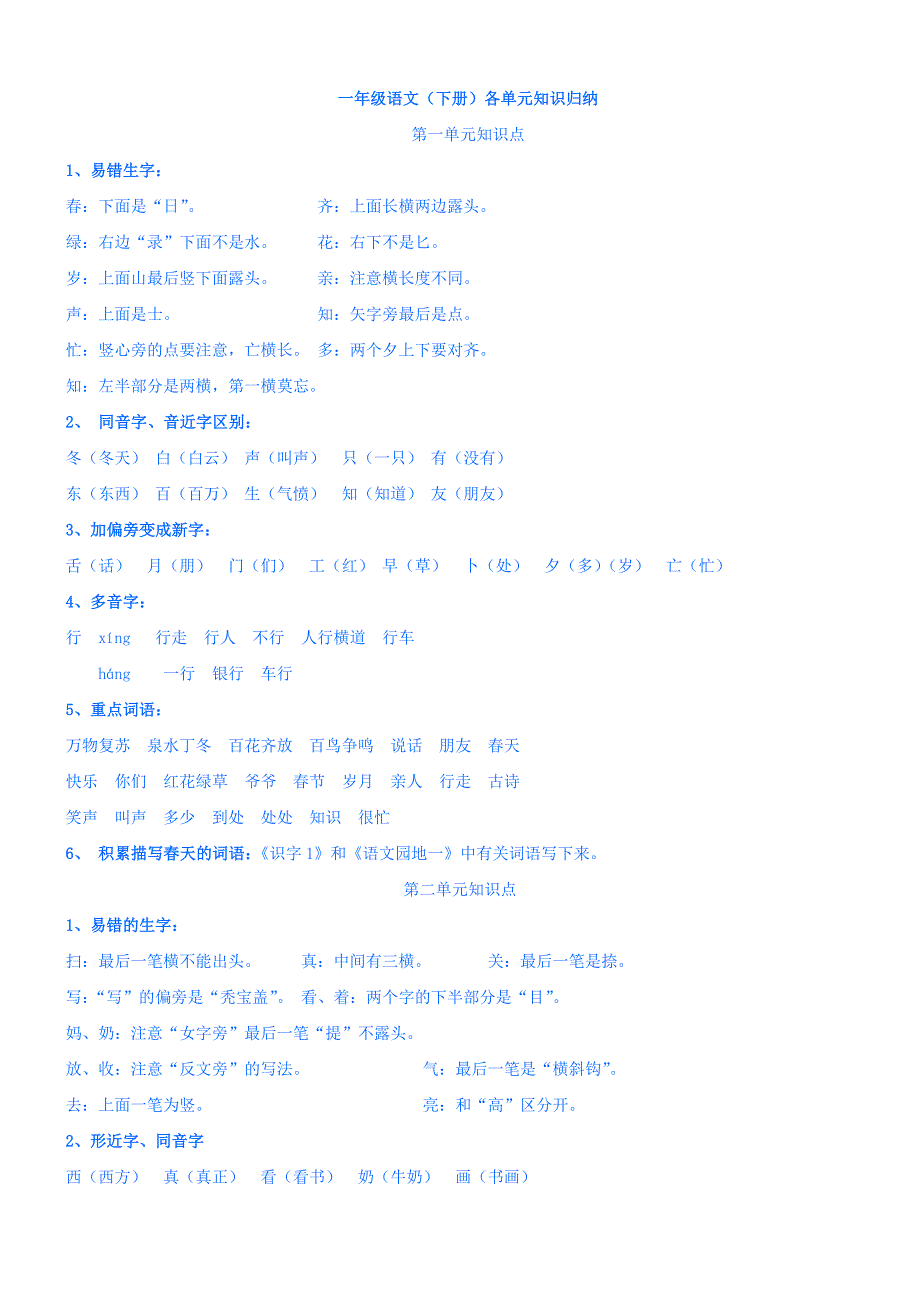 一年级语文（下册）各单元知识归纳
第一单元知识点
1、易错生字：
春：下面是“日”。 齐：上面长横两边露头。
绿：右边“录”下面不是水。 花：右下不是匕。
岁：上面山最后竖下面露头。 亲：注意横长度不同。
声：上面是士。 知：矢字旁最后是点。
忙：竖心旁的点要注意，亡横长。 多：两个夕上下要对齐。
知：左半部分是两横，第一横莫忘。
2、 同音字、音近字区别：
冬（冬天） 白（白云） 声（叫声） 只（一只） 有（没有）
东（东西） 百（百万） 生（气愤） 知（知道） 友（朋友）
3、加偏旁变成新字：
舌（话） 月（朋） 门（们） 工（红） 早（草） 卜（处） 夕（多）（岁） 亡（忙）
4、多音字：
行 xíng 行走 行人 不行 人行横道 行车
háng 一行 银行 车行
5、重点词语：
万物复苏 泉水丁冬 百花齐放 百鸟争鸣 说话 朋友 春天
快乐 你们 红花绿草 爷爷 春节 岁月 亲人 行走 古诗
笑声 叫声 多少 到处 处处 知识 很忙
6、 积累描写春天的词语：《识字1》和《语文园地一》中有关词语写下来。
第二单元知识点
1、易错的生字：
扫：最后一笔横不能出头。 真：中间有三横。 关：最后一笔是捺。
写：“写”的偏旁是“秃宝盖”。 看、着：两个字的下半部分是“目”。
妈、奶：注意“女字旁”最后一笔“提”不露头。
放、收：注意“反文旁”的写法。 气：最后一笔是“横斜钩”。
去：上面一笔为竖。 亮：和“高”区分开。
2、形近字、同音字
西（西方） 真（真正） 看（看书） 奶（牛奶） 画（书画）